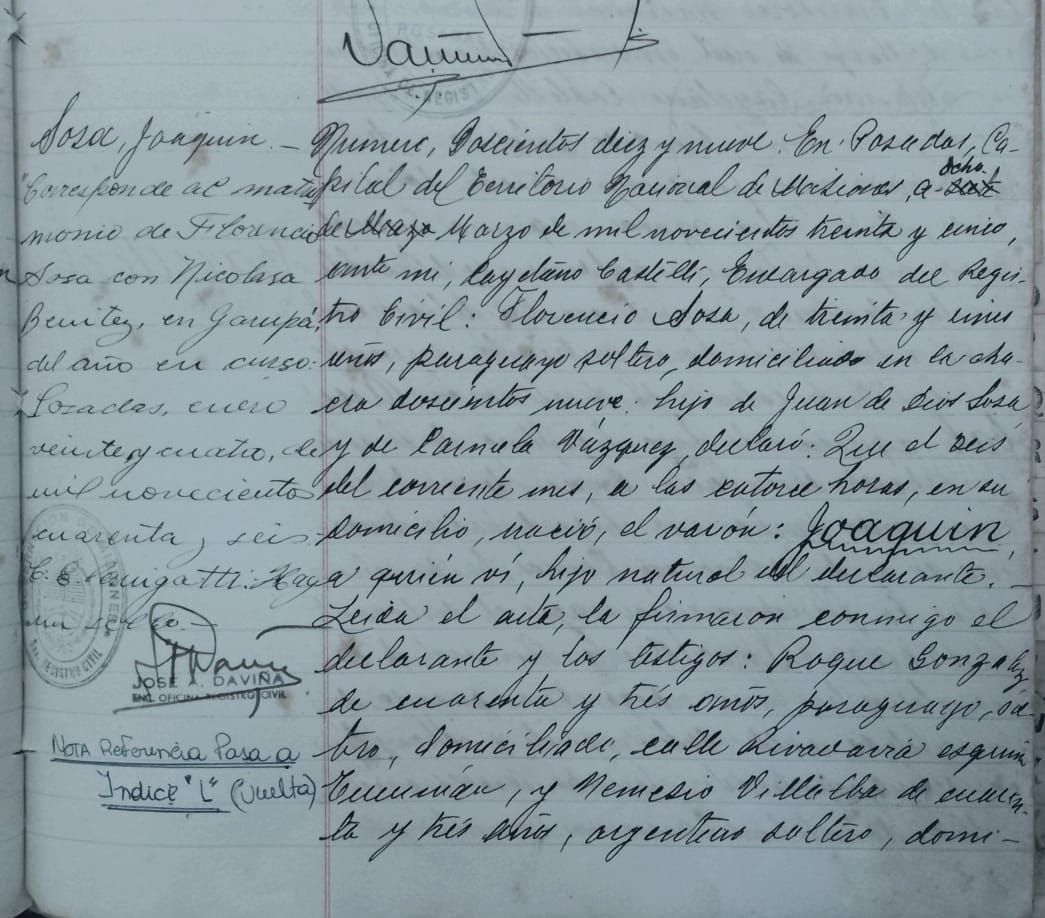 Sosa, Joaquin. –
"Corresponde al matri
monio de Florencio
Sosa con Nicolasa
Benitez, en Garupá,
del año en curso.
Posadas, enero
veinte y cuatro, de
mil novecientos
cuarenta y seis
Hay
un sello. –
JOSE DAVIÑA
ENC. OFICINA REGISTRO CIVIL
NOTA Referencia Pasa a
Indice "L" (Vuelta)
Numero, Doscientos diez y nueve. En Posadas, Ca-
pital del Territorio Nacional de Misiones, a ocho
de Marzo de mil novecientos treinta y cinco,
ante mi, Cayetano Castelli, Encargado del Regis-
tro Civil: Florencio Sosa, de treinta y cinco
años, paraguayo soltero, domiciliado en la cha-
cra doscientos nueve, hijo de Juan de Dios Sosa
y de Carmela Vázquez, declaró: Que el seis
del corriente mes, a las catorce horas, en su
domicilio, nació, el varón: Joaquin,
a quién ví, hijo natural del declarante. –
Leida el acta, la firmaron conmigo el
declarante y los testigos: Roque Gonzalez
de cuarenta y trés años, paraguayo, sol-
tero, domiciliado, calle Rivadavia esquina
Tucumán, y Nemesio Villalba de cuaren-
ta y trés años, argentino soltero, domi-